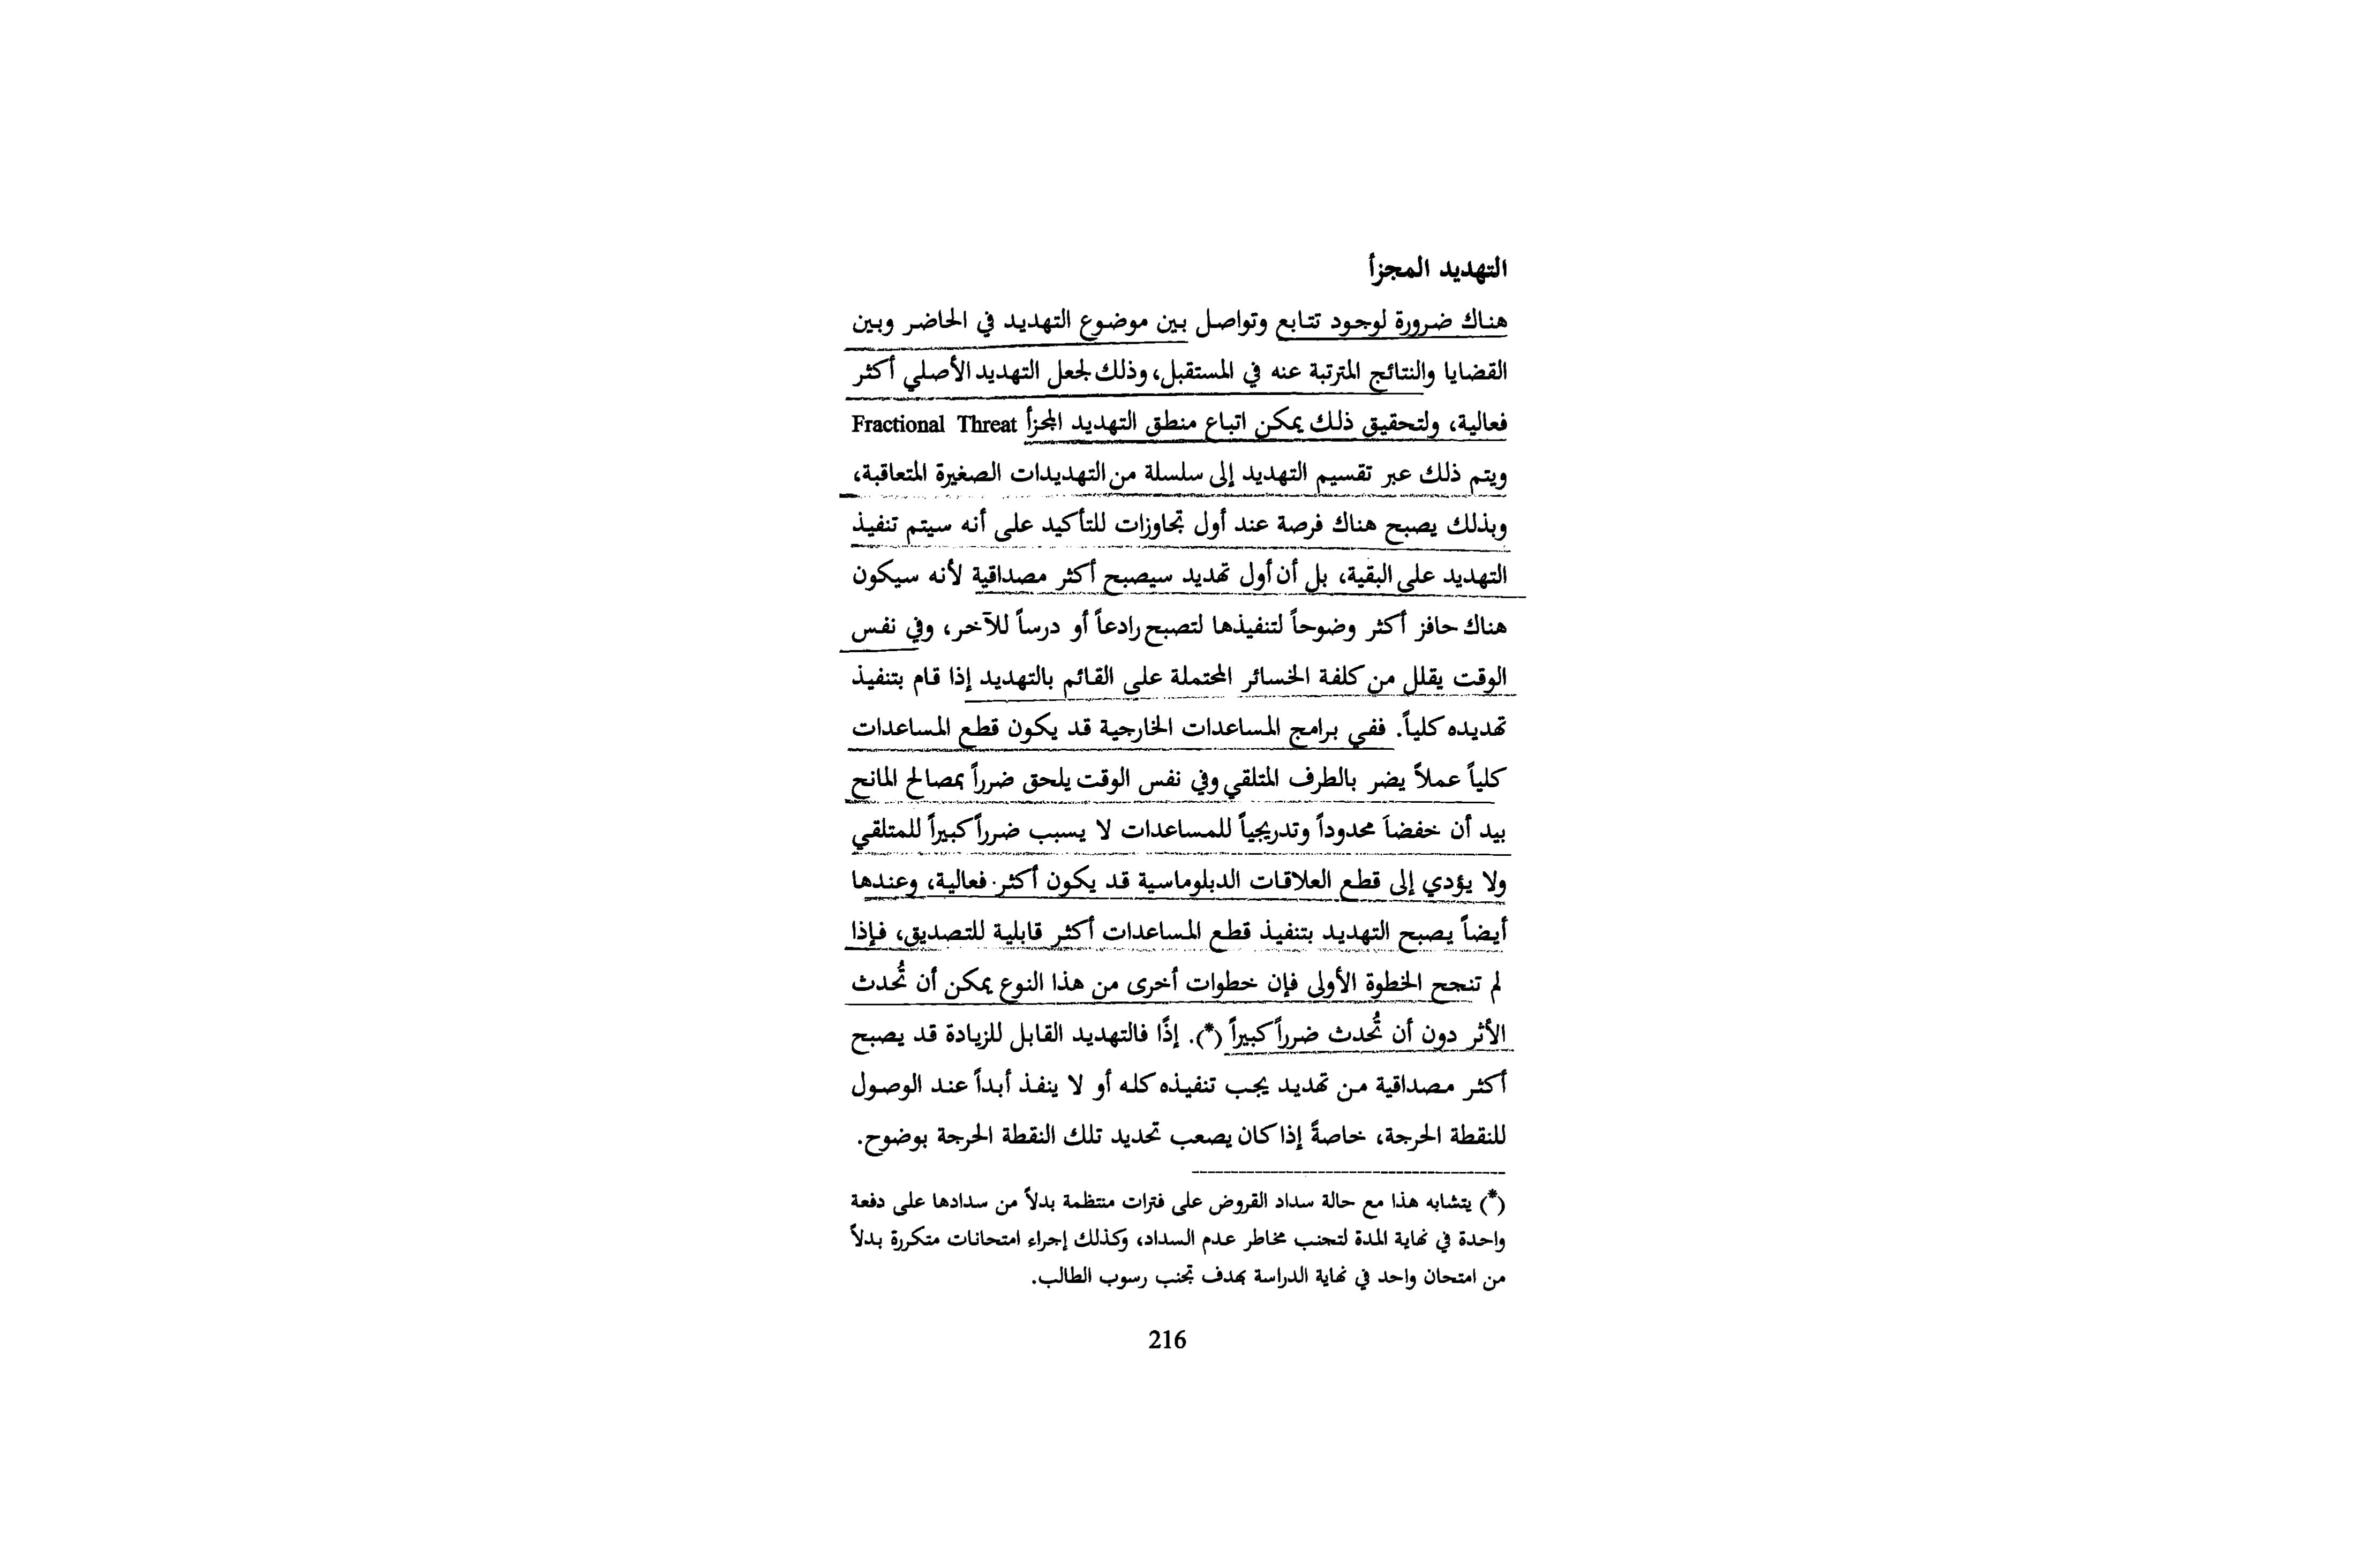 التهديد المجزأ
هناك ضرورة لوجود تتابع وتواصل بين موضوع التهديد في الحاضر وبين
القضايا والنتائج المترتبة عنه في المستقبل، وذلك لجعل التهديد الأصلي أكثر
فعالية، ولتحقيق ذلك يمكن اتباع منطق التهديد المجزأ Fractional Threat
ويتم ذلك عبر تقسيم التهديد إلى سلسلة من التهديدات الصغيرة المتعاقبة،
وبذلك يصبح هناك فرصة عند أول تجاوزات للتأكيد على أنه سيتم تنفيذ
التهديد على البقية، بل أن أول تهديد سيصبح أكثر مصداقية لأنه سيكون
هناك حافز أكثر وضوحاً لتنفيذها لتصبح رادعاً أو درساً للآخر، وفي نفس
الوقت يقلل من كلفة الخسائر المحتملة على القائم بالتهديد إذا قام بتنفيذ
تهديده كلياً. ففي برامج المساعدات الخارجية قد يكون قطع المساعدات
كلياً عملاً يضر بالطرف المتلقي وفي نفس الوقت يلحق ضرراً بمصالح المانح
بيد أن خفضاَ محدوداً وتدريجياً للمساعدات لا يسبب ضرراً كبيراً للمتلقي
ولا يؤدي إلى قطع العلاقات الدبلوماسية قد يكون أكثر فعالية، وعندها
أيضاً يصبح التهديد بتنفيذ قطع المساعدات أكثر قابلية للتصديق، فإذا
لم تنجح الخطوة الأولى فإن خطوات أخرى من هذا النوع يمكن أن تُحدث
الأثر دون أن تُحدث ضرراً كبيراً (*). إذًا فالتهديد القابل للزيادة قد يصبح
أكثر مصداقية من تهديد يجب تنفيذه كله أو لا ينفذ أبداً عند الوصول
للنقطة الحرجة، خاصةً إذا كان يصعب تحديد تلك النقطة الحرجة بوضوح.
(*) يتشابه هذا مع حالة سداد القروض على فترات منتظمة بدلاً من سدادها على دفعة
واحدة في نهاية المدة لتجنب مخاطر عدم السداد، وكذلك إجراء امتحانات متكررة بدلاً
من امتحان واحد في نهاية الدراسة بهدف تجنب رسوب الطالب.
216